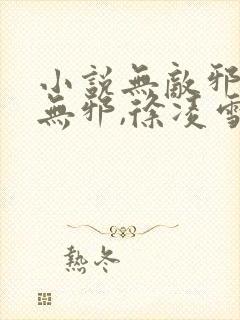 小説無敵邪
無邪,徐凌雪
熱冬